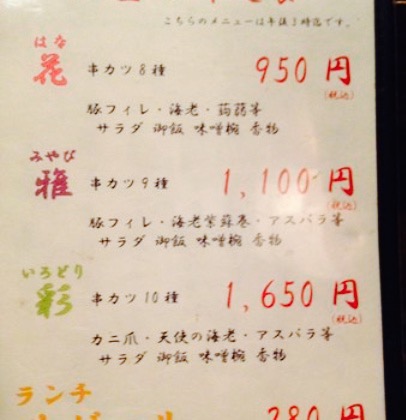 こちらのメニューは午後3時迄です。
はな
花 串カツ8種 950円
(税込)
豚フィレ・海老・蒟蒻等
サラダ 御飯 味噌椀 香物
みやび
雅 串カツ9種 1,100円
(税込)
豚フィレ・海老紫蘇巻・アスパラ等
サラダ 御飯 味噌椀 香物
いろどり
彩 串カツ10種 1,650円
(税込)
カニ爪・天使の海老・アスパラ等
サラダ 御飯 味噌椀 香物
ランチ
280円